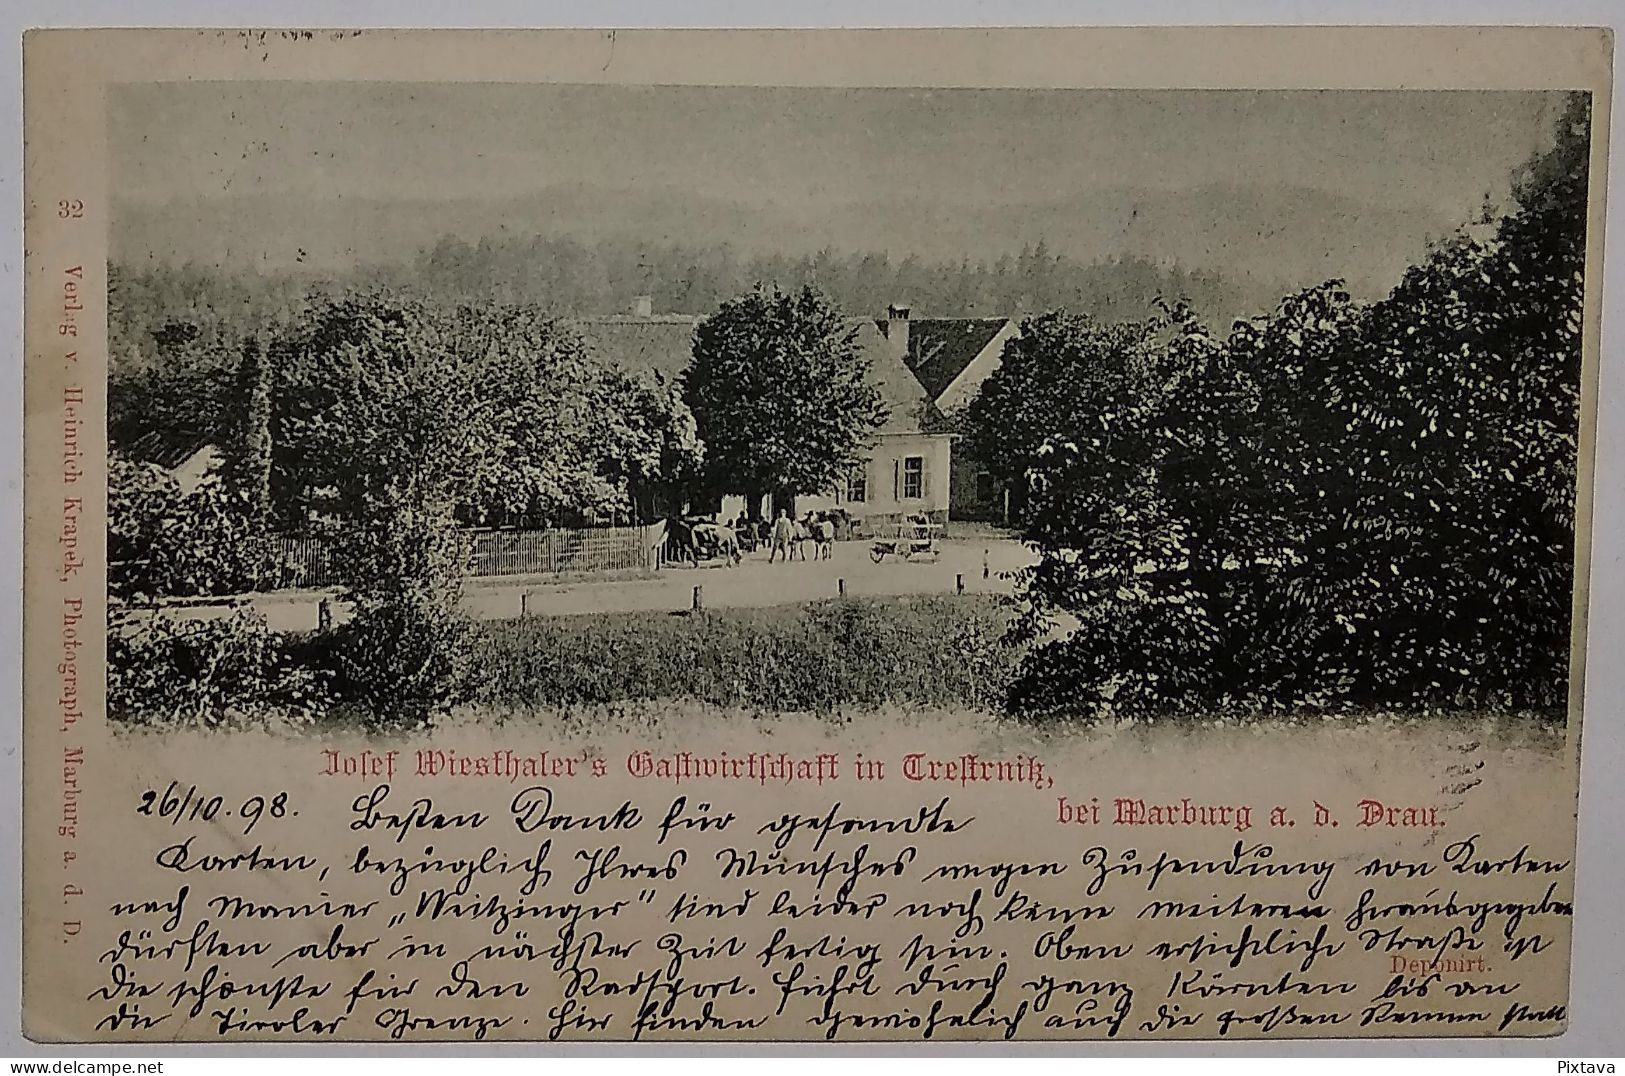 32 Verlag v. Heinrich Krapek, Photograph, Marburg a. d. D.
Josef Wiesthaler's Gastwirtschaft in Trestrnitz,
bei Marburg a. d. Drau.
26/10.98. Besten Dank für gesandte
Karten, bezüglich Ihres Wunsches wegen Zusendung von Karten
nach Manier „Weitzinger" sind leider noch keine weiteren herausgegeben
dürften aber in nächster Zeit fertig sein. Oben ersichtliche Straße ist
Deponirt.
die schönste für den Radsport. Führt durch ganz Kärnten bis an
die Tiroler Grenze. Hier finden gewöhnlich auch die großen Rennen statt
Pixtava